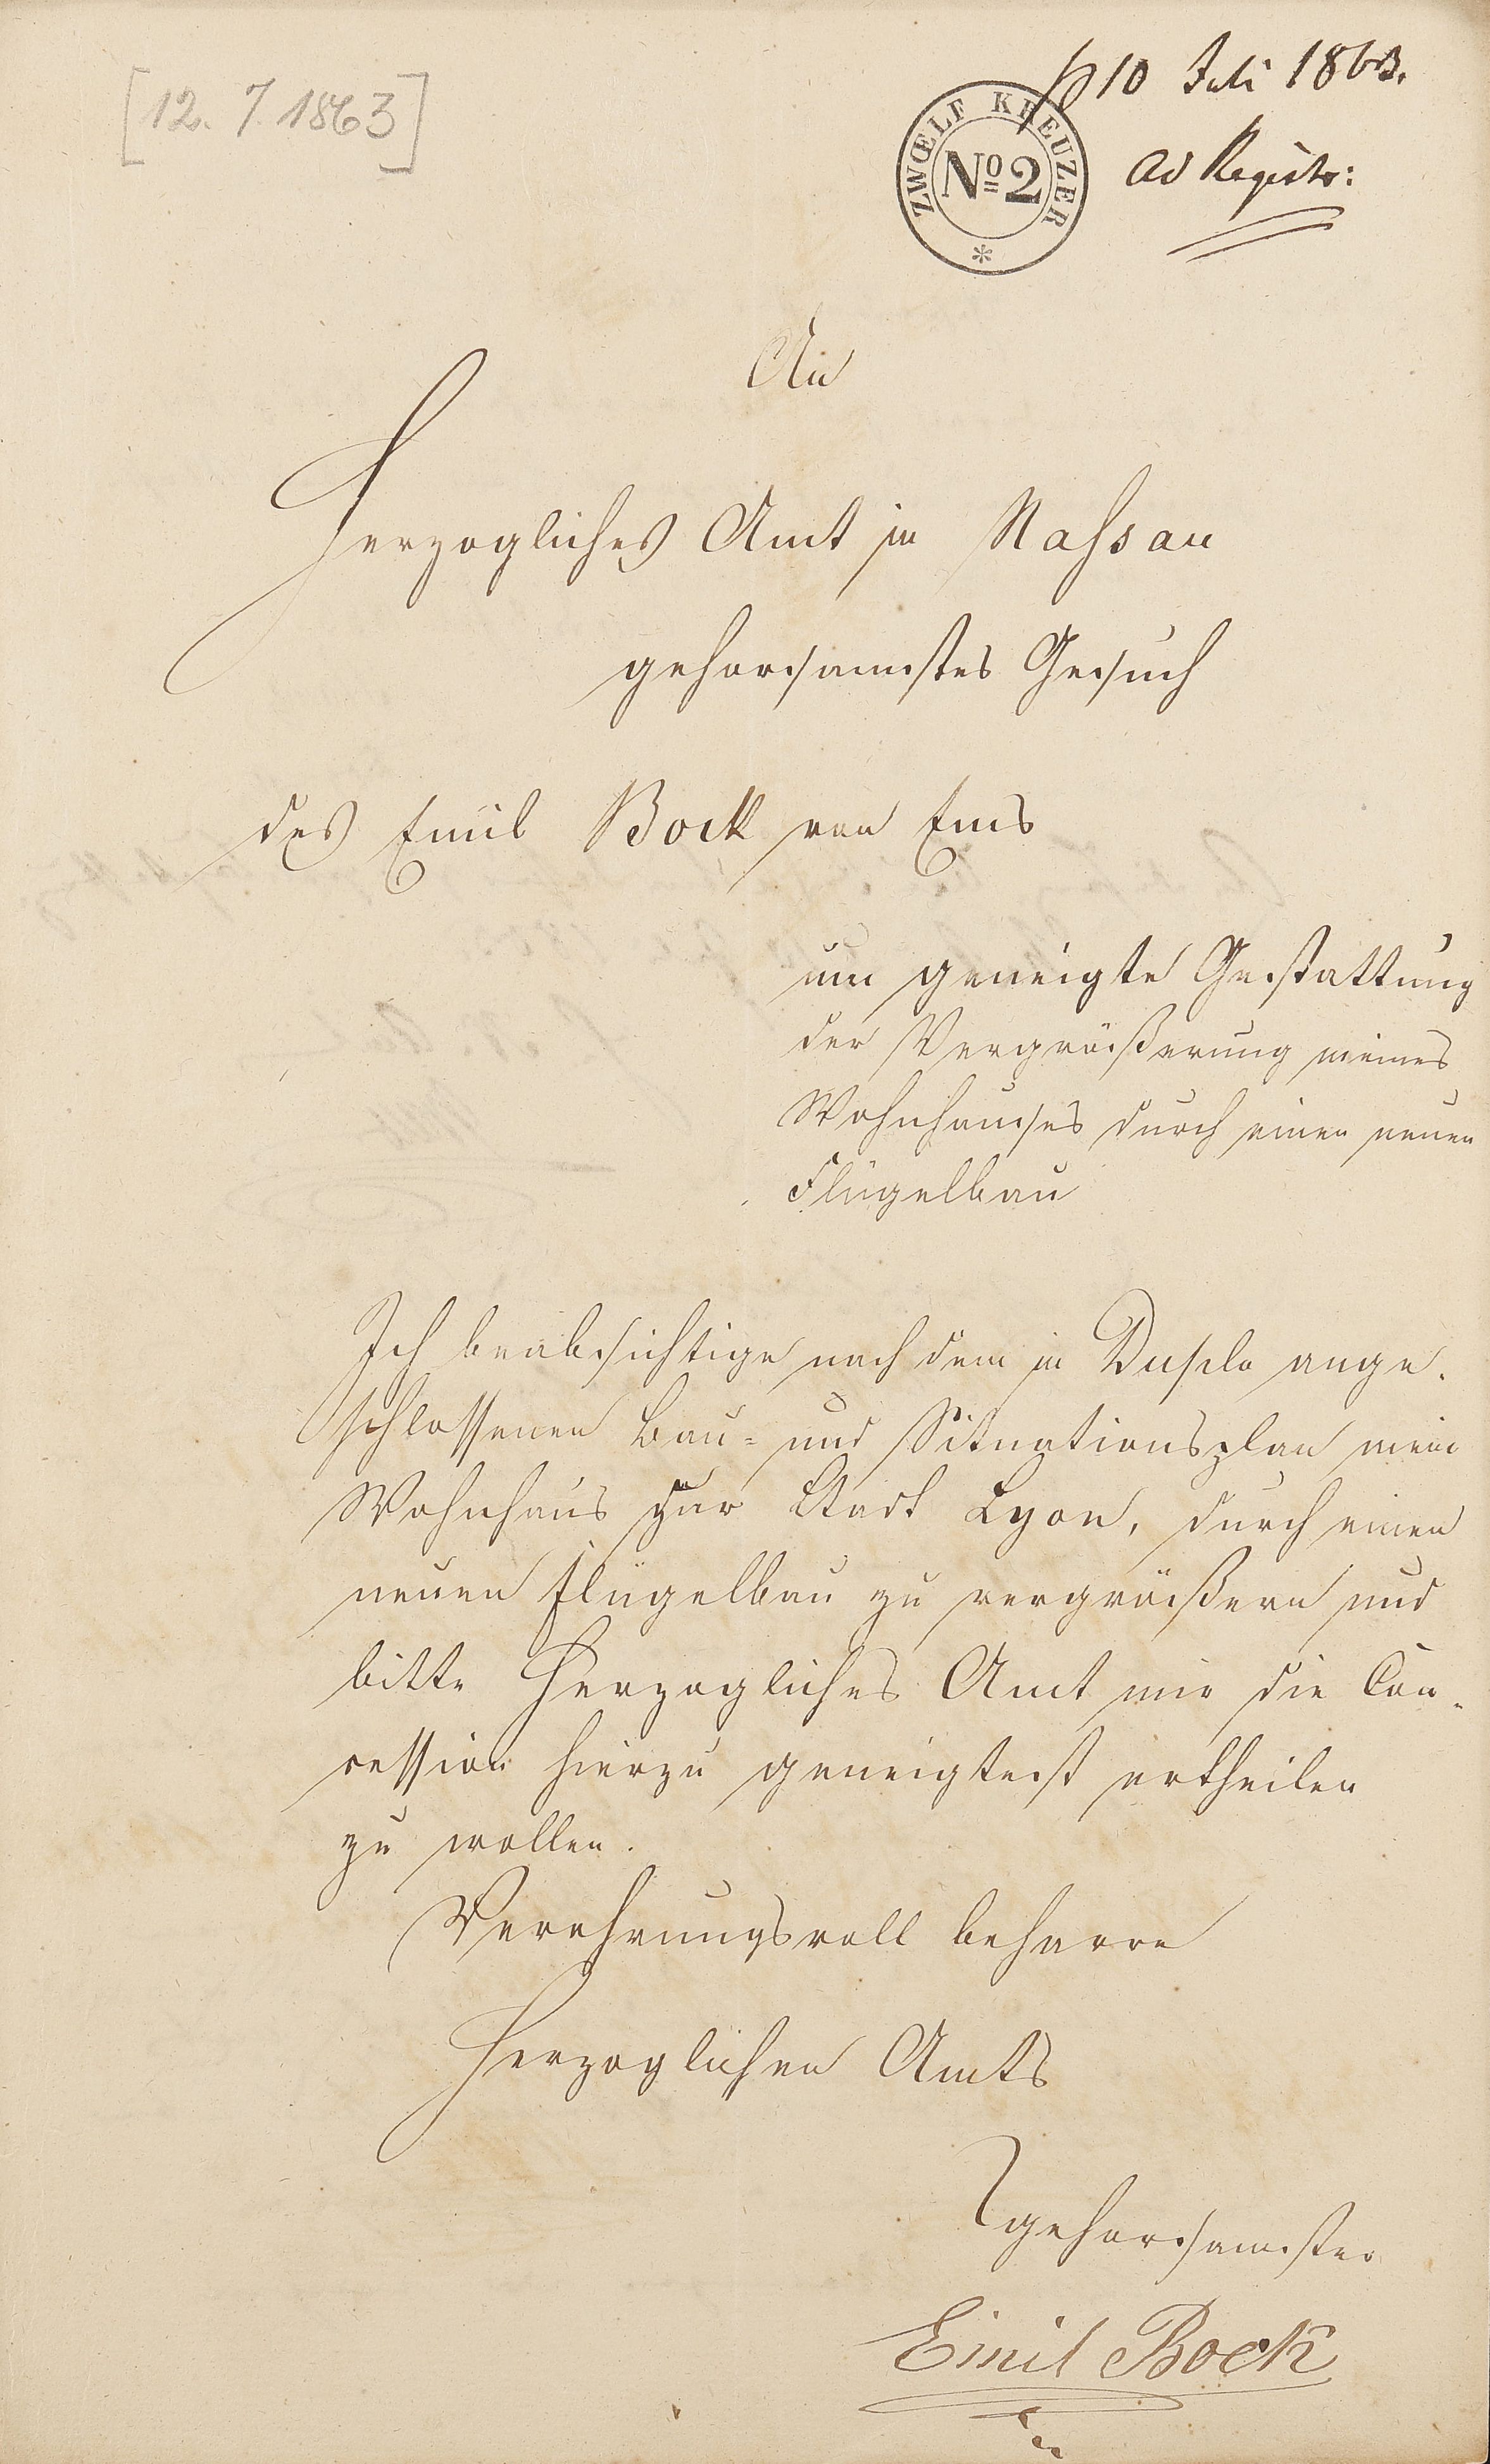 [12. 7. 1863]
10 Juli 1863.
ZWŒLF KREUZER
No 2
ad Registr:
An
Herzogliches Amt in Nassau
gehorsamstes Gesuch
des Emil Bock von Ems
um geneigte Gestattung
der Vergrößerung meines
Wohnhauses durch einen neuen
Flügelbau
Ich beabsichtige nach dem in Duplo ange-
schlossenen Bau- und Situationsplan mein
Wohnhaus zur Stadt Lyon, durch einen
neuen Flügelbau zu vergrößern und
bitte Herzogliches Amt mir die Con-
cession hierzu geneigtest ertheilen
zu wollen.
Verehrungsvoll beharre
Herzoglichen Amts
gehorsamster
Emil Bock